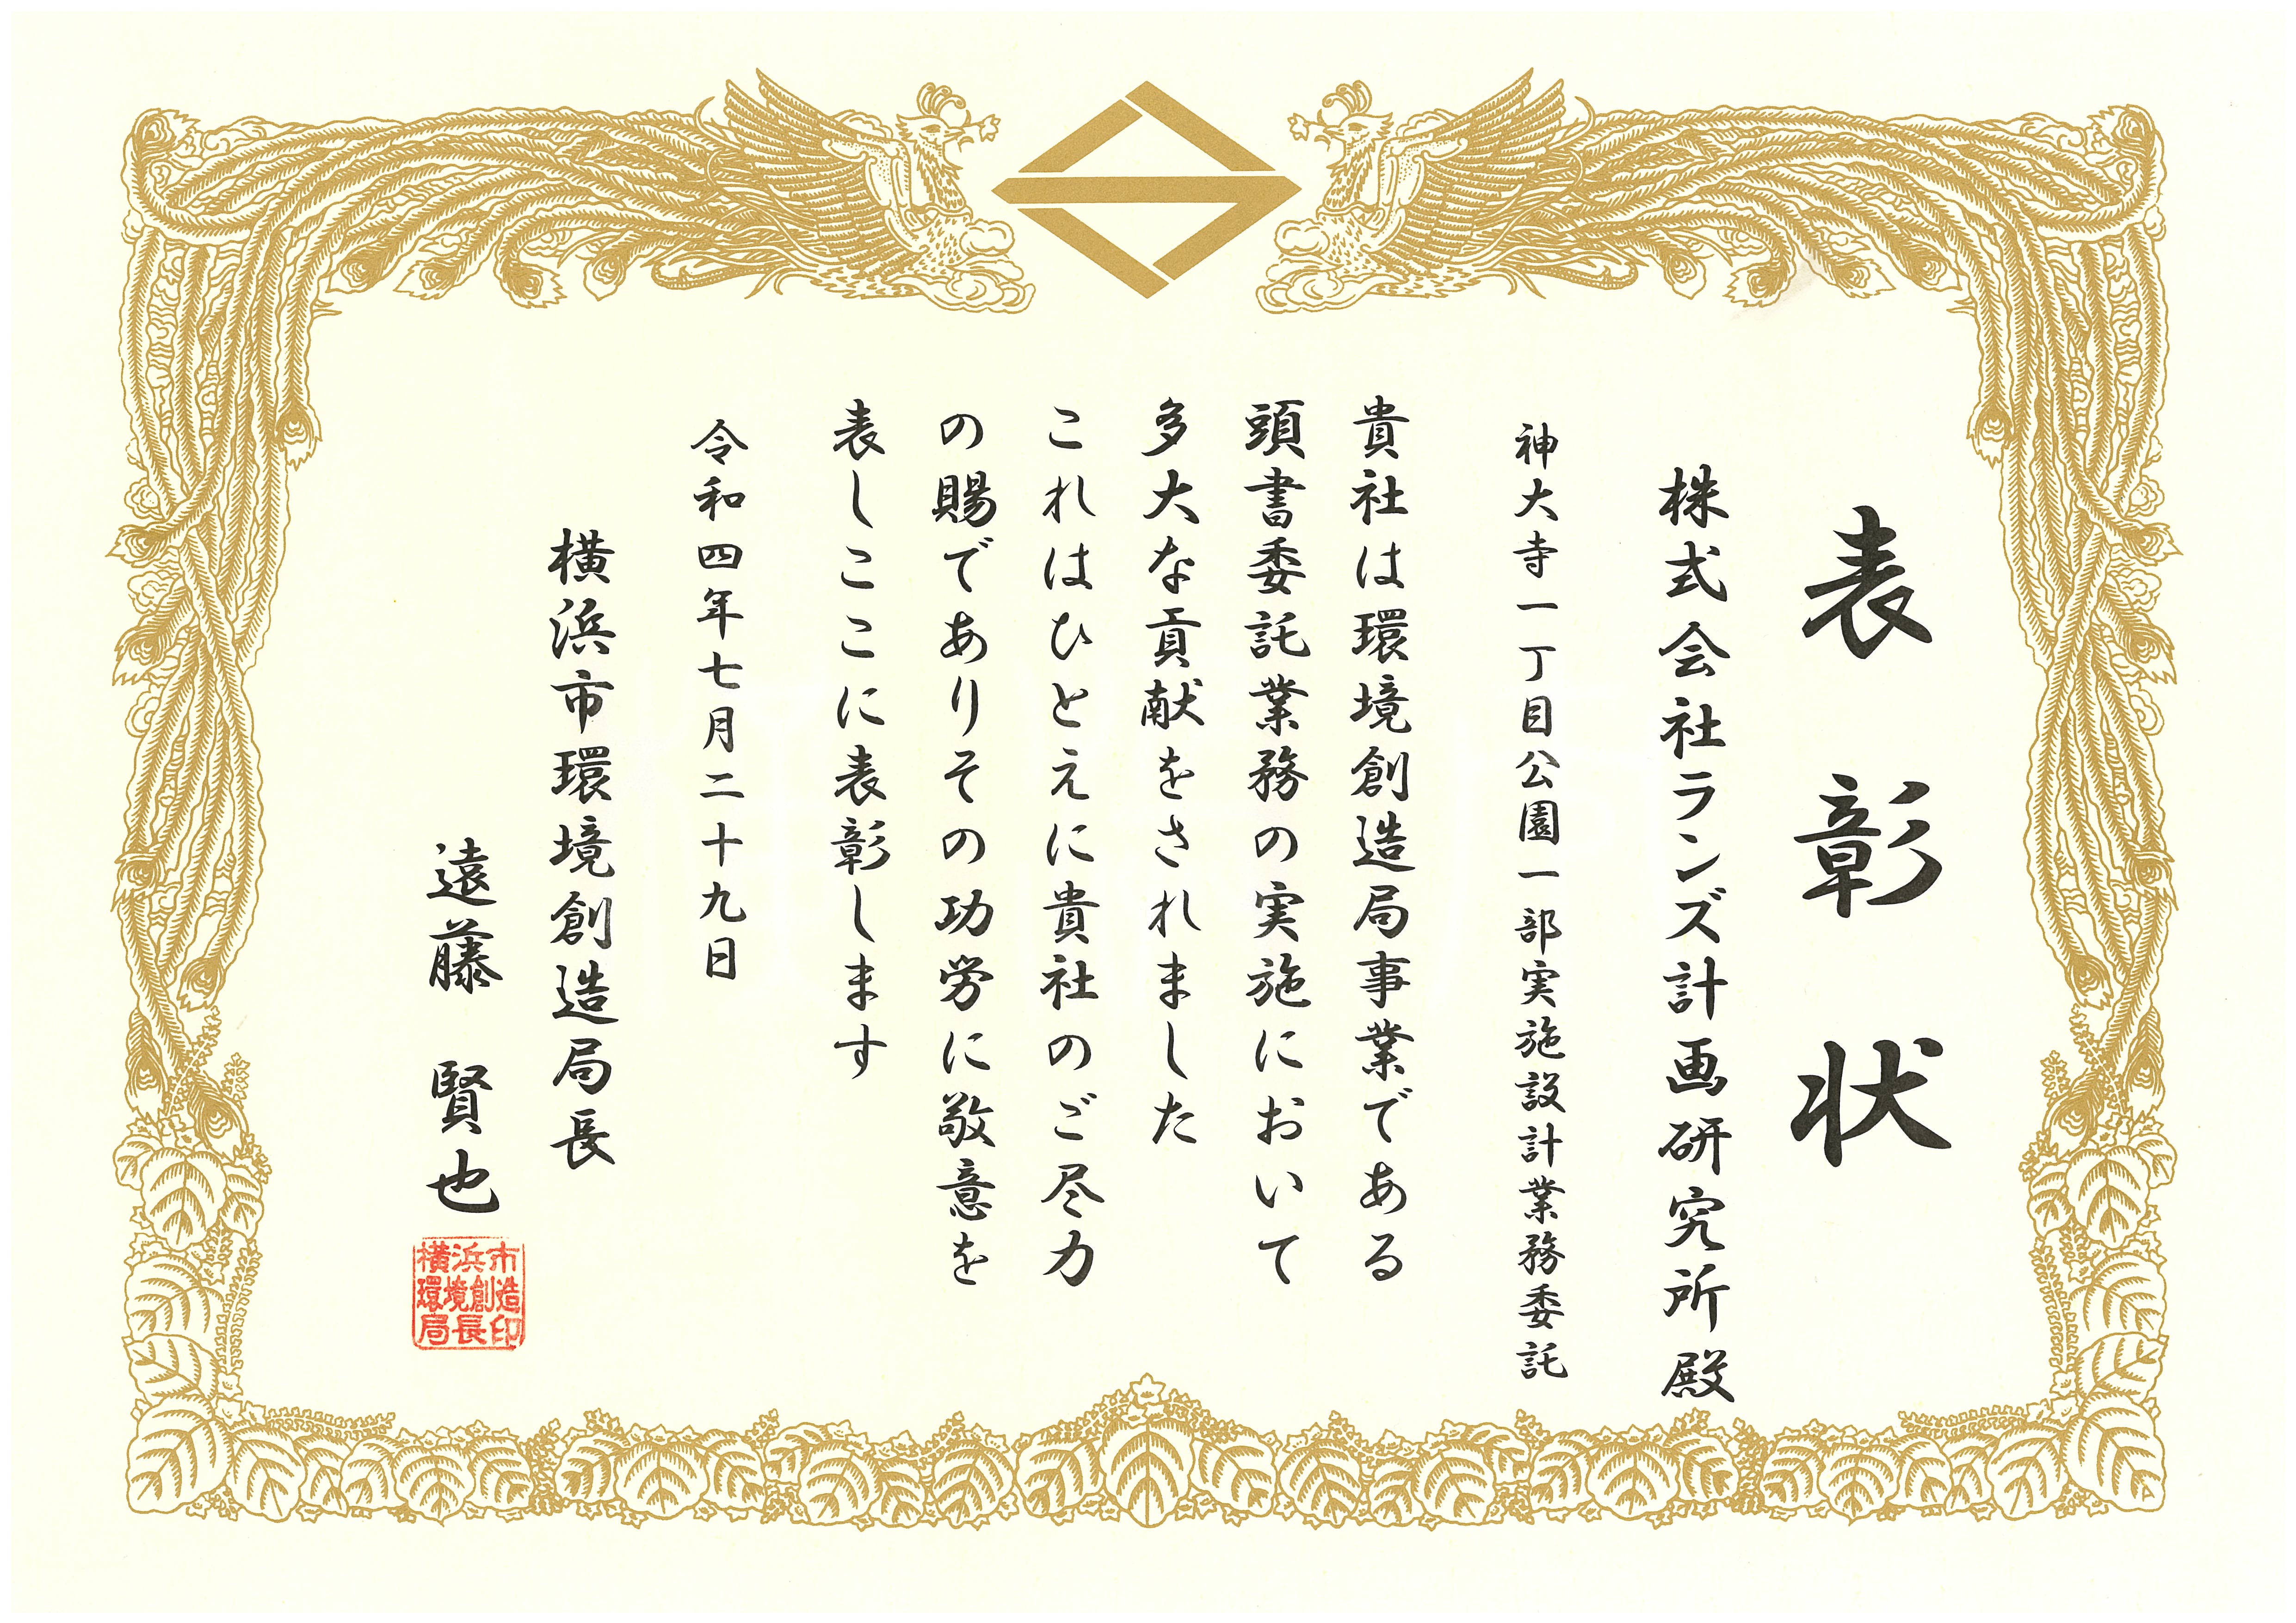 表彰状
株式会社ランズ計画研究所殿
神大寺一丁目公園一部実施設計業務委託
貴社は環境創造局事業である
頭書委託業務の実施において
多大な貢献をされました
これはひとえに貴社のご尽力
の賜でありその功労に敬意を
表しここに表彰します
令和四年七月二十九日
横浜市環境創造局長
遠藤　賢也
横浜市
環境創造
局長印